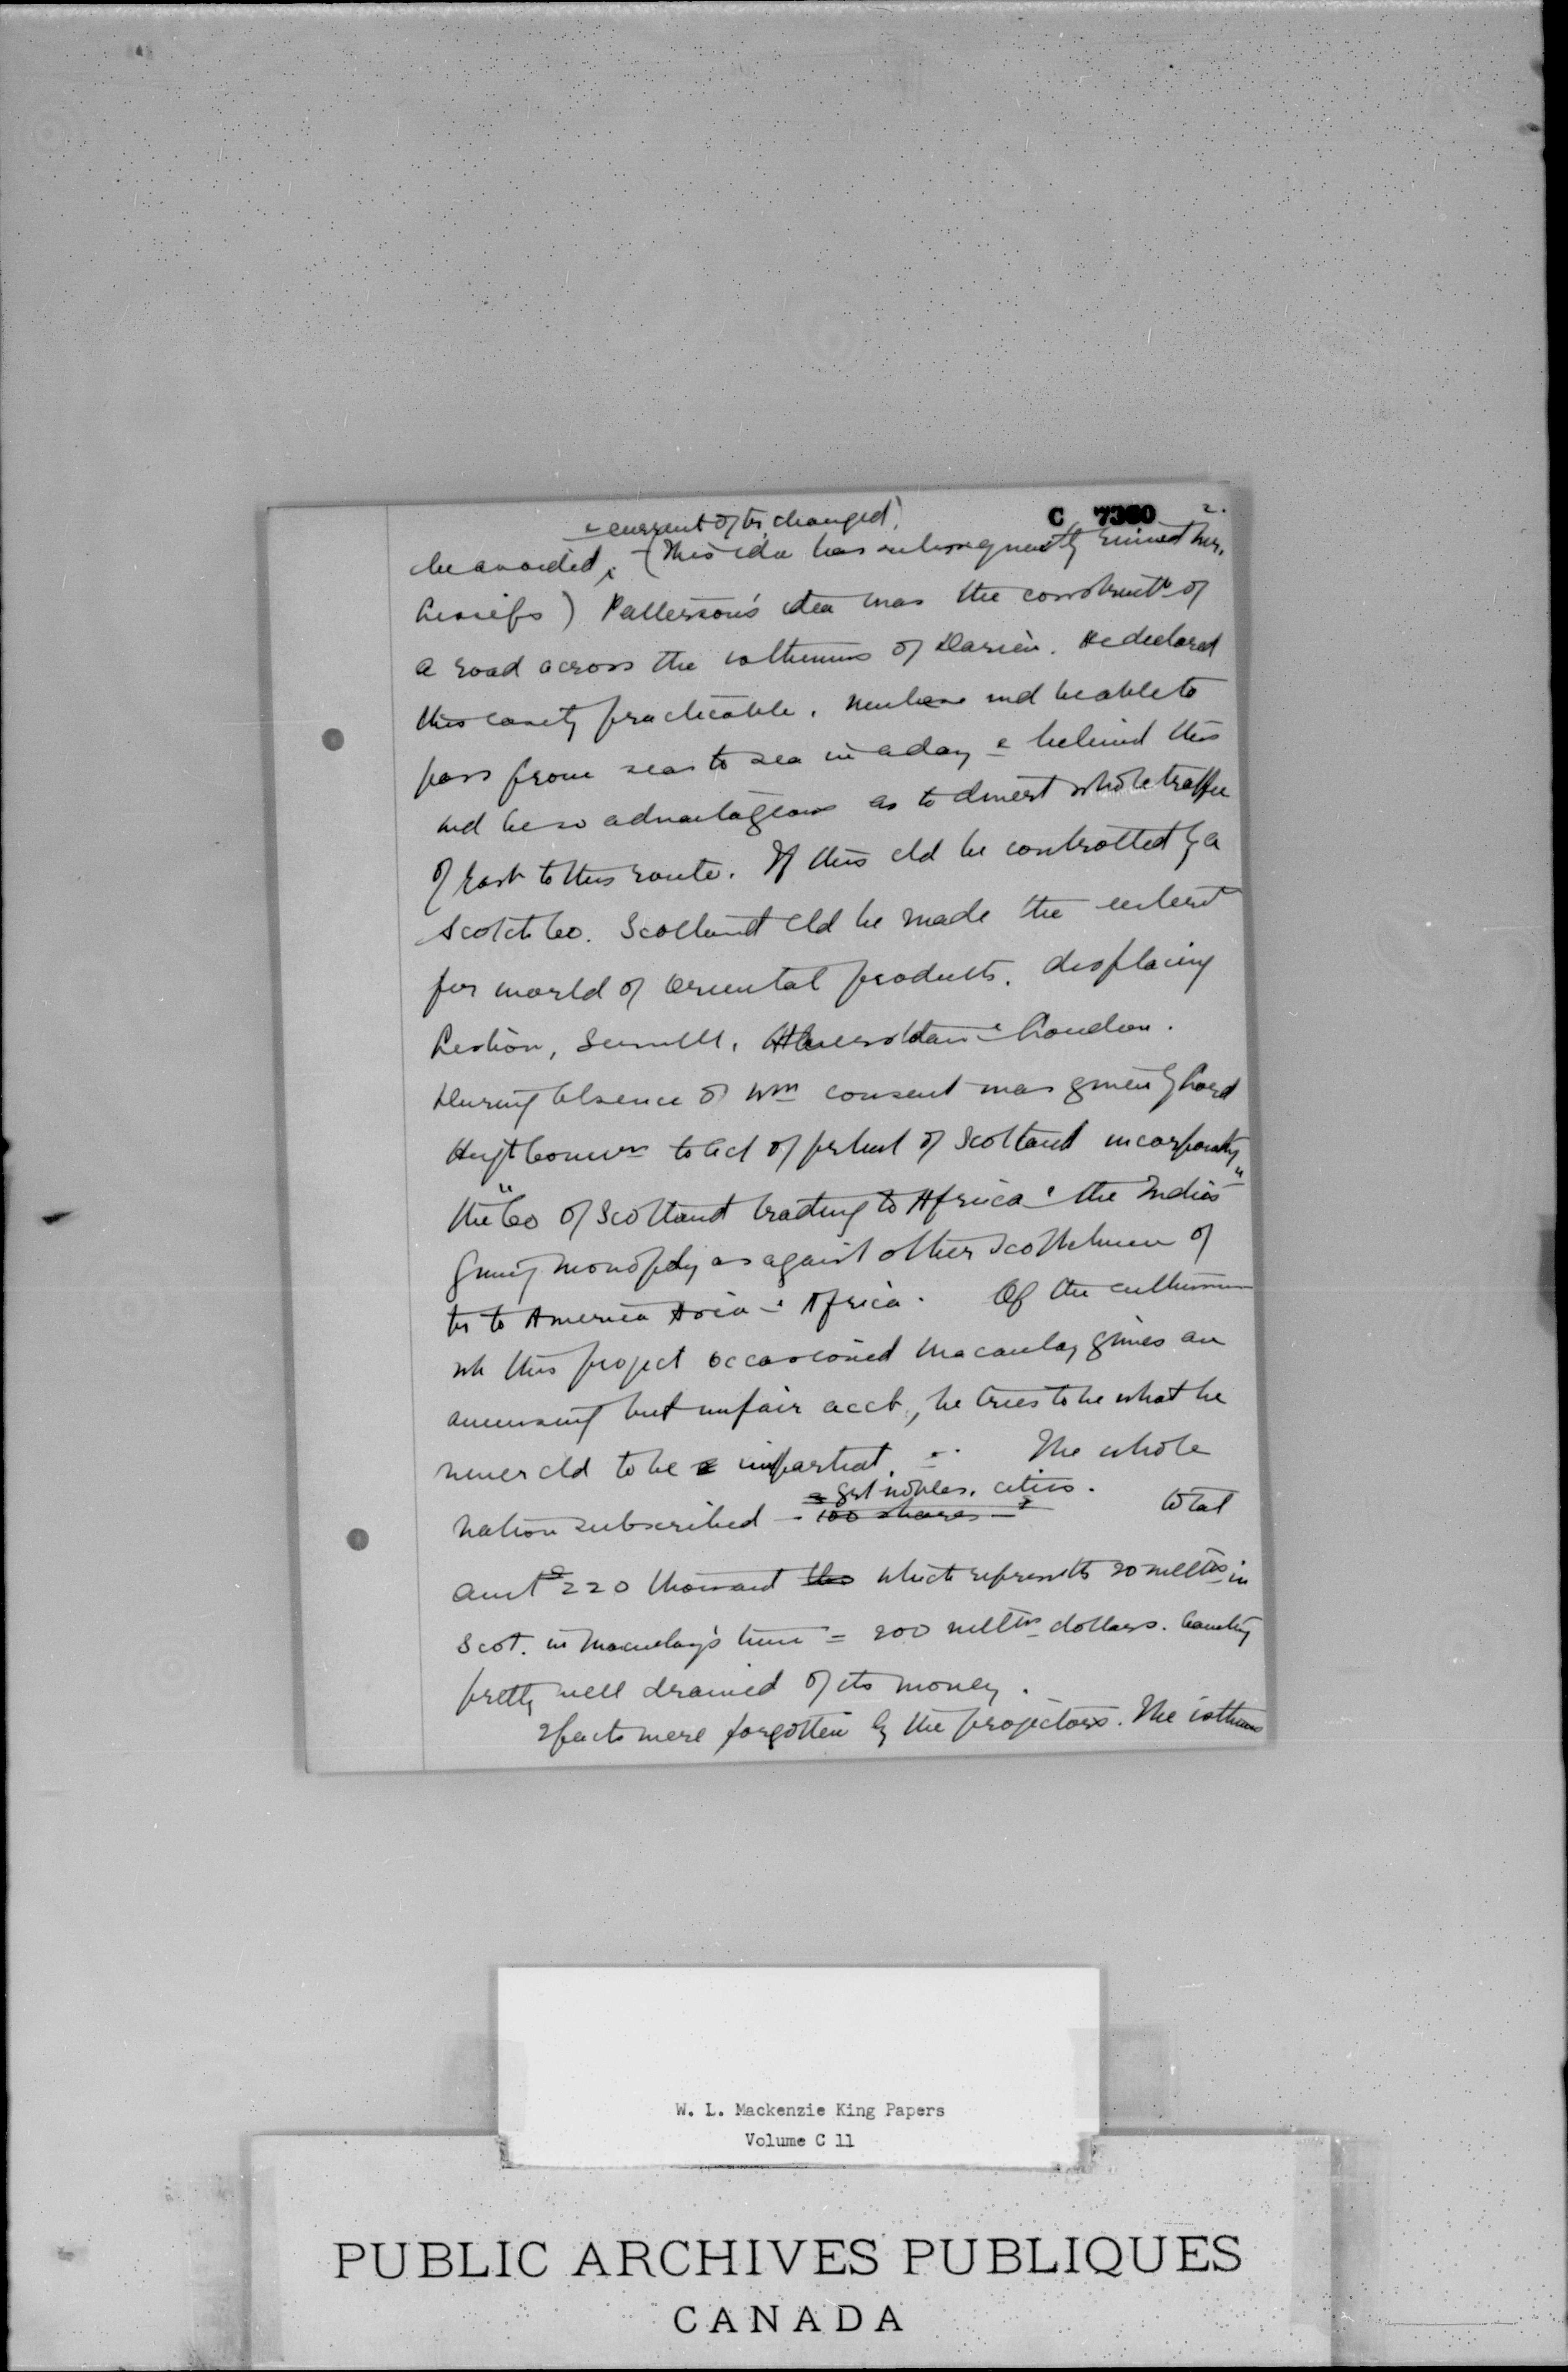 C 7360 2.
& current of tr. changed
be avoided, (This idea has subsequently ruined
) Patterson's idea was the construct'n of
a road across the isthmus of Darien. He declared
this easily practicable. wd be able to
pass from sea to sea in a day & believed this
wd be so advantageous as to divert whole traffic
of East to this route. If this cld be controlled by a
Scotch Co. Scotland cld be made the
for world of Oriental products. displacing
Lisbon, Amsterdam & London.
During absence of Wm consent was given by Lord
High Commr to act of of Scotland incorporating
the "Co of Scotland trading to Africa & the Indies"
giving monopoly as against other Scotchmen of
tr to America Asia & Africa. Of the enthusiasm
wh this project occasioned Macaulay gives an
amusing but unfair acct, he tries to be what he
never cld to be impartial. The whole
& gt nobles, cities.
nation subscribed - 100 shares - total
amt 220 thousand the which represents 20 mill'ns in
Scot. in Macaulay's time = 200 mill'ns dollars. Country
pretty well drained of its money.
2 facts were forgotten by the projectors. The isthmus
W. L. Mackenzie King Papers
Volume C 11
PUBLIC ARCHIVES PUBLIQUES
CANADA